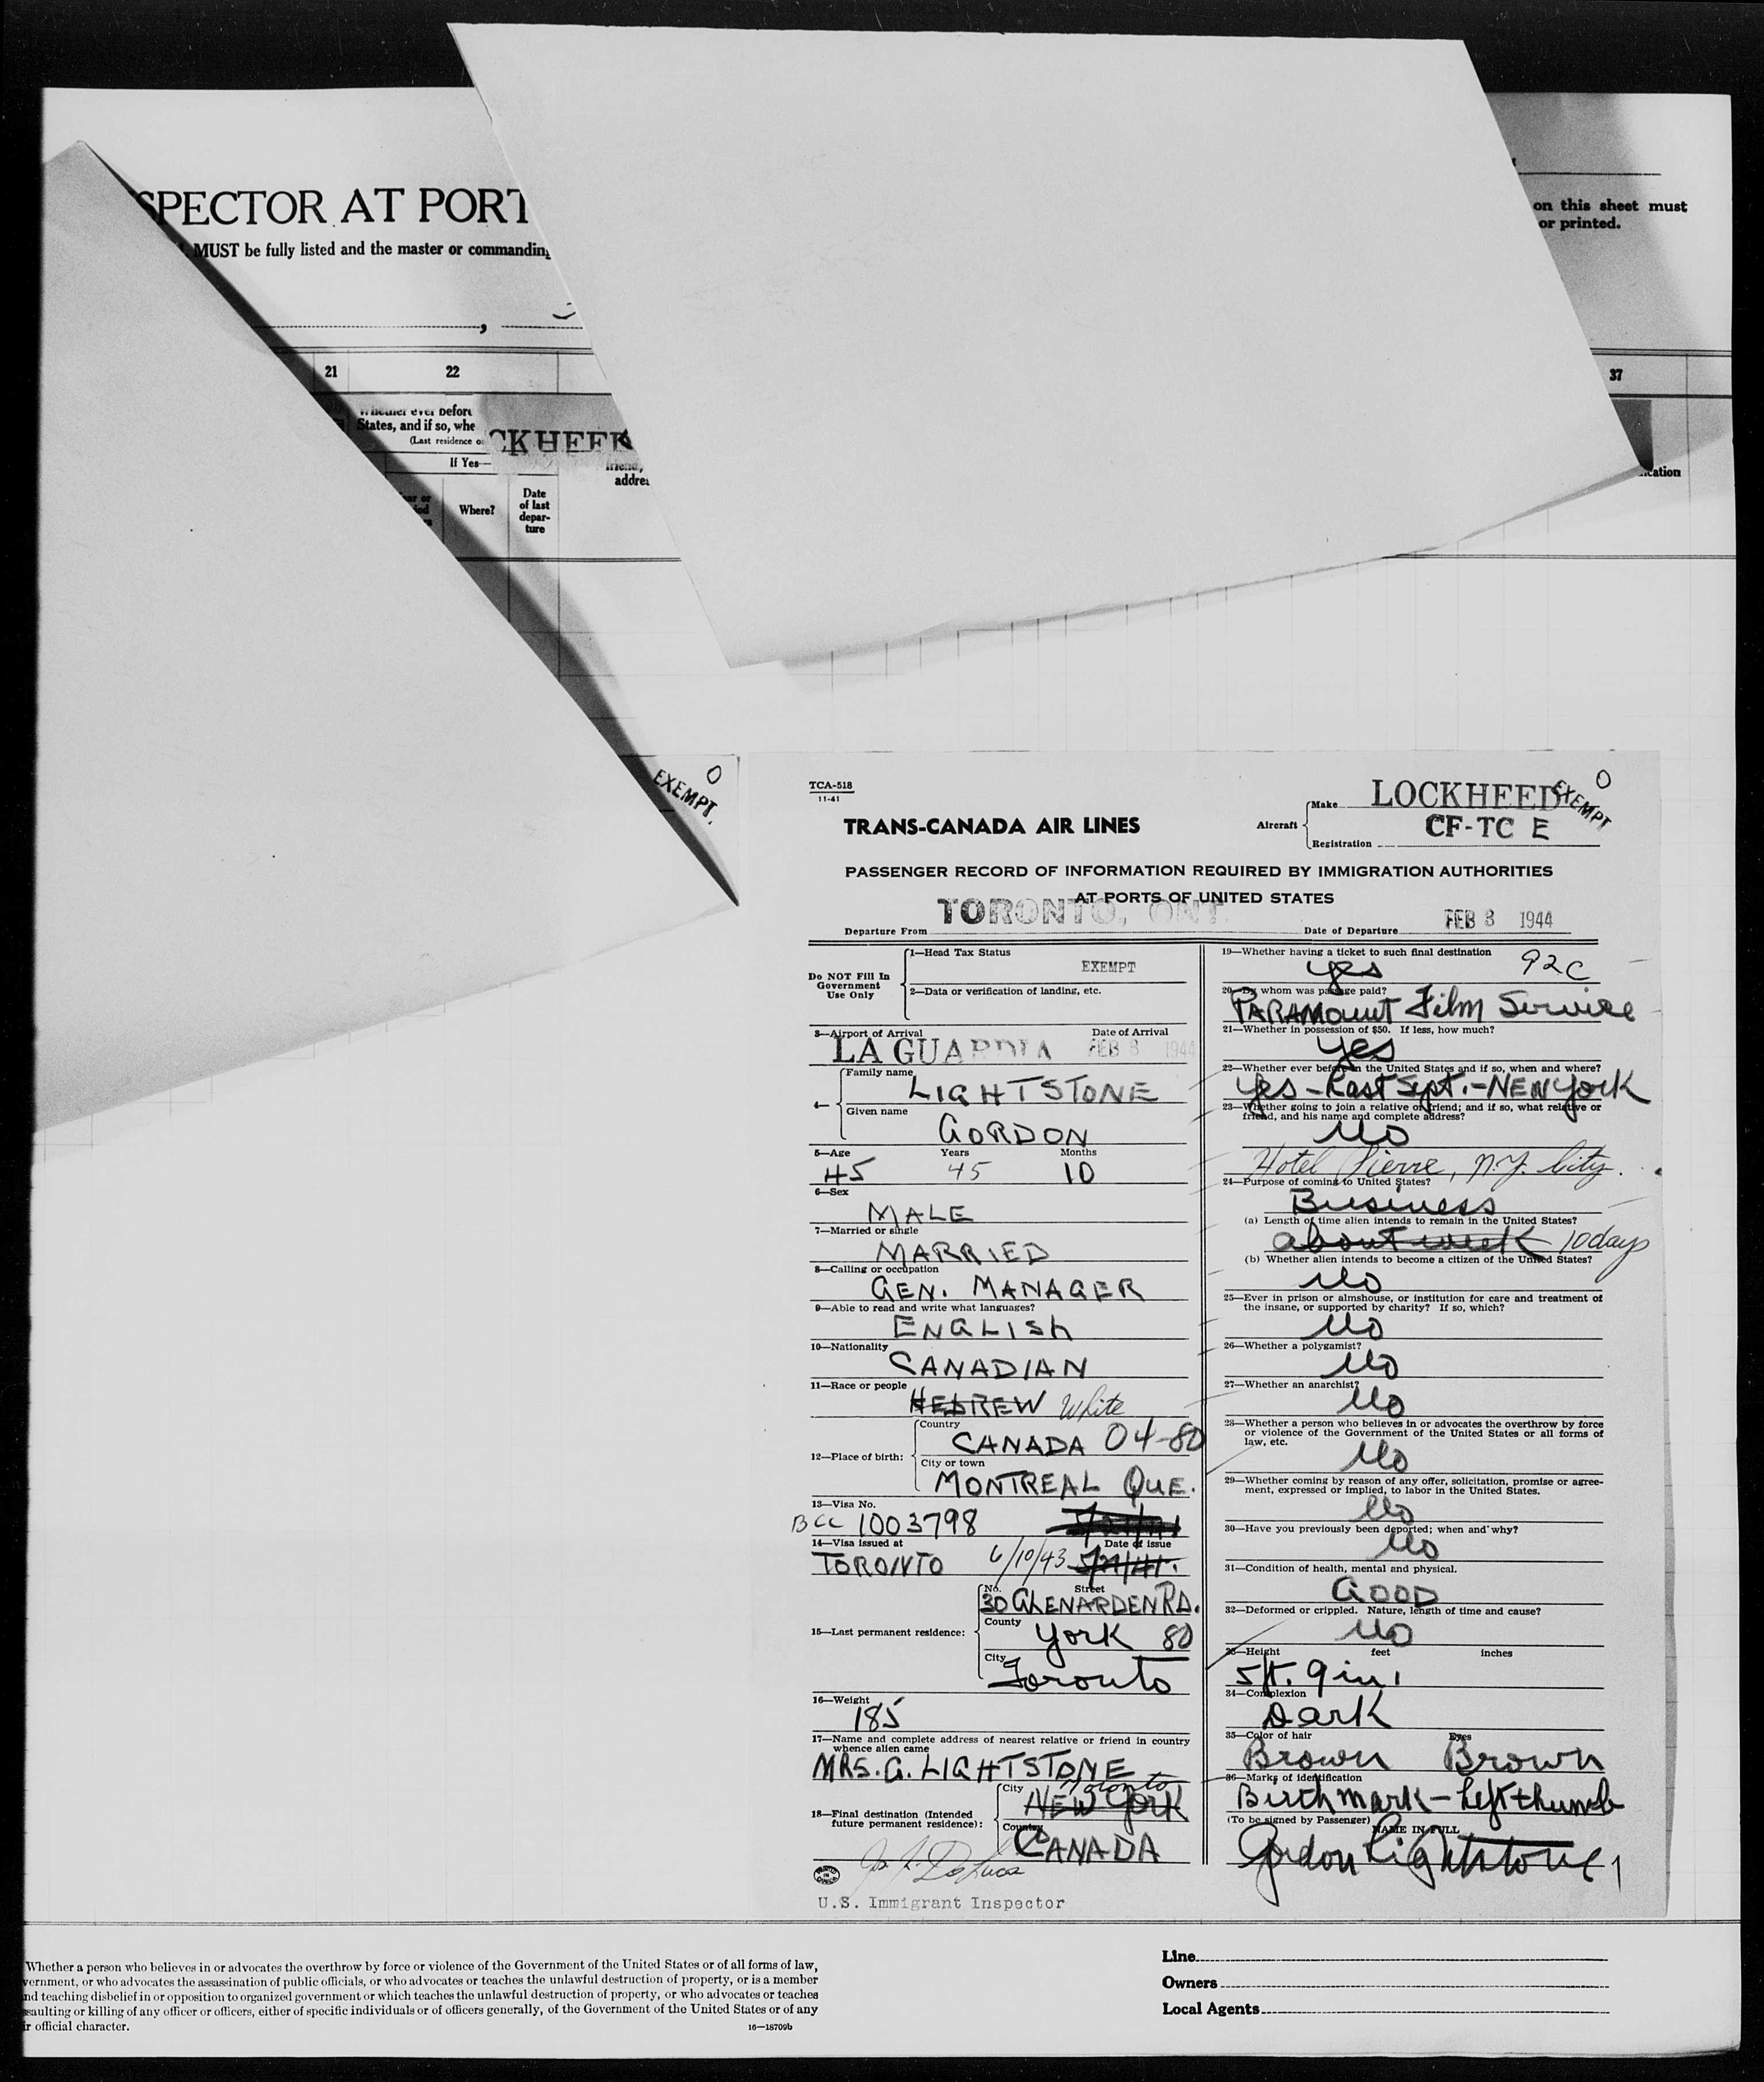 SPECTOR AT PORT
MUST be fully listed and the master or commanding
on this sheet must
or printed.
21
22
37
Whether ever before
States, and if so, whe
(Last residence o
CKHEE
If Yes—
friend,
addres
ication
Where?
Date
of last
depar-
ture
O
EXEMPT.
TCA-518
11-41
TRANS-CANADA AIR LINES
Aircraft
Make LOCKHEED
O
EXEMPT
Registration CF-TC E
PASSENGER RECORD OF INFORMATION REQUIRED BY IMMIGRATION AUTHORITIES
AT PORTS OF UNITED STATES
Departure From TORONTO, ONT.
Date of Departure FEB 3 1944
Do NOT Fill In
Government
Use Only
1—Head Tax Status
EXEMPT
2—Data or verification of landing, etc.
3—Airport of Arrival Date of Arrival
LA GUARDIA FEB 3 1944
4—
Family name
LIGHTSTONE
Given name
GORDON
5—Age Years Months
45 45 10
6—Sex
MALE
7—Married or single
MARRIED
8—Calling or occupation
GEN. MANAGER
9—Able to read and write what languages?
ENGLISH
10—Nationality
CANADIAN
11—Race or people
HEBREW White
12—Place of birth:
Country
CANADA 04-80
City or town
MONTREAL QUE.
13—Visa No.
BCC 1003798
14—Visa issued at Date of issue
TORONTO 6/10/43
15—Last permanent residence:
No. Street
30 GLENARDEN RD.
County
York 80
City
Toronto
16—Weight
185
17—Name and complete address of nearest relative or friend in country
whence alien came
MRS. G. LIGHTSTONE
18—Final destination (Intended
future permanent residence):
City Toronto
NEW York
Country
CANADA
U.S. Immigrant Inspector
19—Whether having a ticket to such final destination
yes 92C
20—By whom was passage paid?
PARAMOUNT Film Service
21—Whether in possession of $50. If less, how much?
yes
22—Whether ever before in the United States and if so, when and where?
Yes - Last Sept. - NEW York
23—Whether going to join a relative or friend; and if so, what relative or
friend, and his name and complete address?
No
Hotel Pierre, N.Y. City.
24—Purpose of coming to United States?
Business
(a) Length of time alien intends to remain in the United States?
about week 10 days
(b) Whether alien intends to become a citizen of the United States?
No
25—Ever in prison or almshouse, or institution for care and treatment of
the insane, or supported by charity? If so, which?
No
26—Whether a polygamist?
No
27—Whether an anarchist?
No
28—Whether a person who believes in or advocates the overthrow by force
or violence of the Government of the United States or all forms of
law, etc.
No
29—Whether coming by reason of any offer, solicitation, promise or agree-
ment, expressed or implied, to labor in the United States.
No
30—Have you previously been deported; when and why?
No
31—Condition of health, mental and physical.
GOOD
32—Deformed or crippled. Nature, length of time and cause?
No
33—Height feet inches
5 ft. 9 in.
34—Complexion
Dark
35—Color of hair Eyes
Brown Brown
36—Marks of identification
Birthmark - Left thumb
(To be signed by Passenger) NAME IN FULL
Gordon Lightstone
Whether a person who believes in or advocates the overthrow by force or violence of the Government of the United States or of all forms of law,
vernment, or who advocates the assassination of public officials, or who advocates or teaches the unlawful destruction of property, or is a member
nd teaching disbelief in or opposition to organized government or which teaches the unlawful destruction of property, or who advocates or teaches
saulting or killing of any officer or officers, either of specific individuals or of officers generally, of the Government of the United States or of any
r official character.
16—18709b
Line
Owners
Local Agents